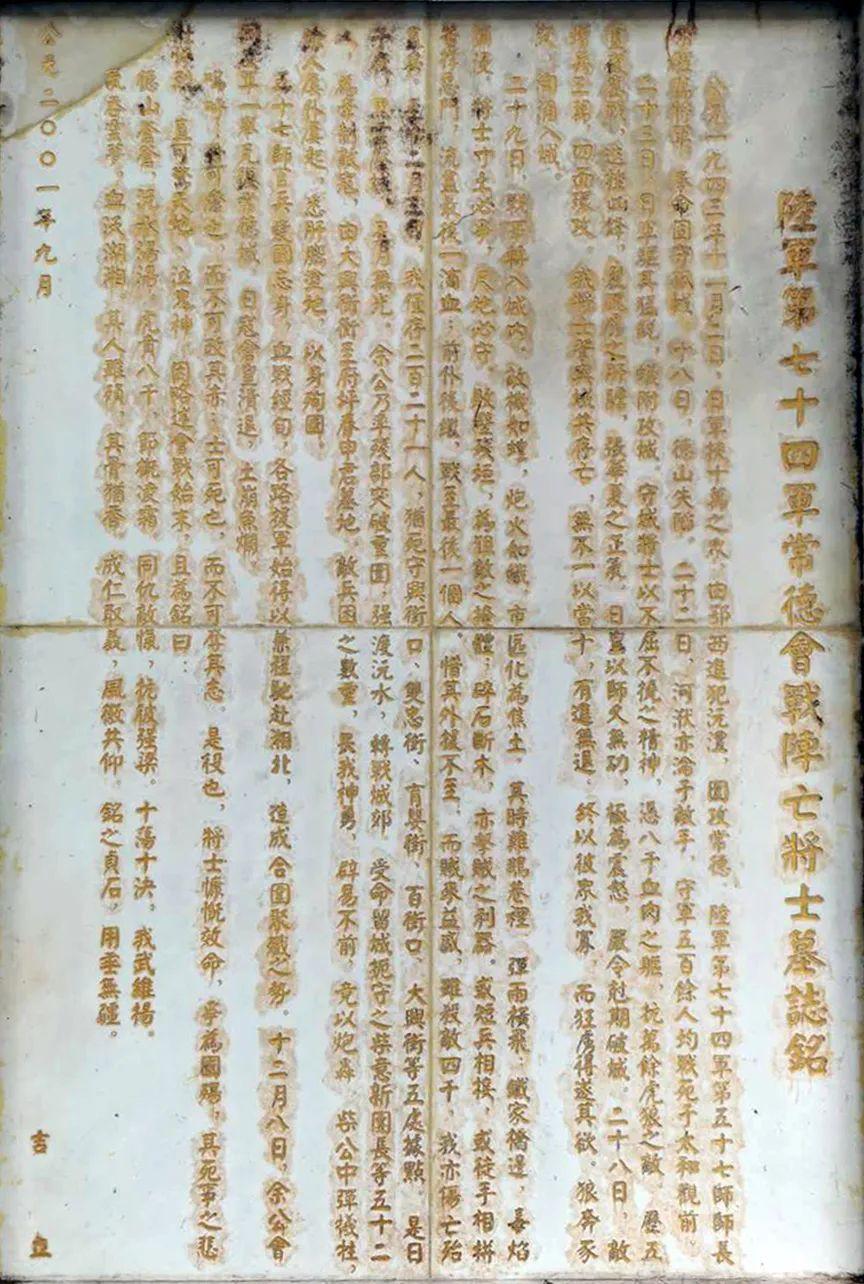 陸軍第七十四軍常德會戰陣亡將士墓誌銘
公元一九四三年十一月二日，日軍挾十萬之眾，由鄂西進犯沅澧，圍攻常德，陸軍第七十四軍第五十七師師長
奉命固守城，十八日，德山失陷，二十二日，河洑亦淪于敵手，守軍五百餘人均戰死于太和觀前。
二十三日，日軍攻城，守城將士以不屈不撓之精神，憑八千血肉之軀，抗萬餘虎狼之敵，歷五
之正氣，日寇以師久無功，極為震怒，嚴令剋期破城。二十八日，敵
四面猛攻，我將士誓與城共存亡，無不一以當十，有進無退，終以彼眾我寡，而狂虜得遂其欲。狼奔豕
突，洶湧入城。
二十九日，入城內，敵機如蝗，炮火如織，市區化為焦土，其時雞鵝巷裡，彈雨橫飛，鐵家橋邊，毒焰
將士寸土必爭，尺地必守，敗壁殘垣，為阻敵之掩體；碎石斷木，亦擊賊之利器。或短兵相接，或徒手相拼
流盡最後一滴血；前仆後繼，戰至最後一個人。惜其外援不至，而賊來益眾，雖殺敵四千，我亦傷亡殆
十二月三日，我僅存二百二十一人，猶死守興街口、雙忠街、育嬰街、百街口、大興街等五處據點，是日
日月無光，余公乃率殘部突破重圍，強渡沅水，轉戰城郊，受命留城扼守之柴意新團長等五十二
人，為牽制敵寇，由大興街衝至府坪春申君墓地，敵兵困之數重，畏我神勇，辟易不前，竟以炮轟，柴公中彈犧牲，
餘人屢仆屢起，悉所盡死，以身殉國。
五十七師官兵為國忘身，血戰經旬，各路援軍始得以兼程馳赴湘北，造成合圍聚殲之勢。十二月八日，余公會
軍一舉克復常德城，日寇倉皇潰退，土崩魚爛。
嗚呼，可奪之，而不可改其赤；士可死也，而不可奪其志。是役也，將士慷慨效命，爭為國殤，其死事之悲
直可驚天地，泣鬼神，因略述會戰始末，且為銘曰：
德山蒼蒼，沅水湯湯，虎賁八千，節概凌霜，同仇敵愾，抗彼强梁。十蕩十決，我武維揚。
血沃湖湘，其人雖殞，其骨猶香，成仁取義，風徽共仰，銘之貞石，用垂無疆。
吉立
公元二〇〇一年九月